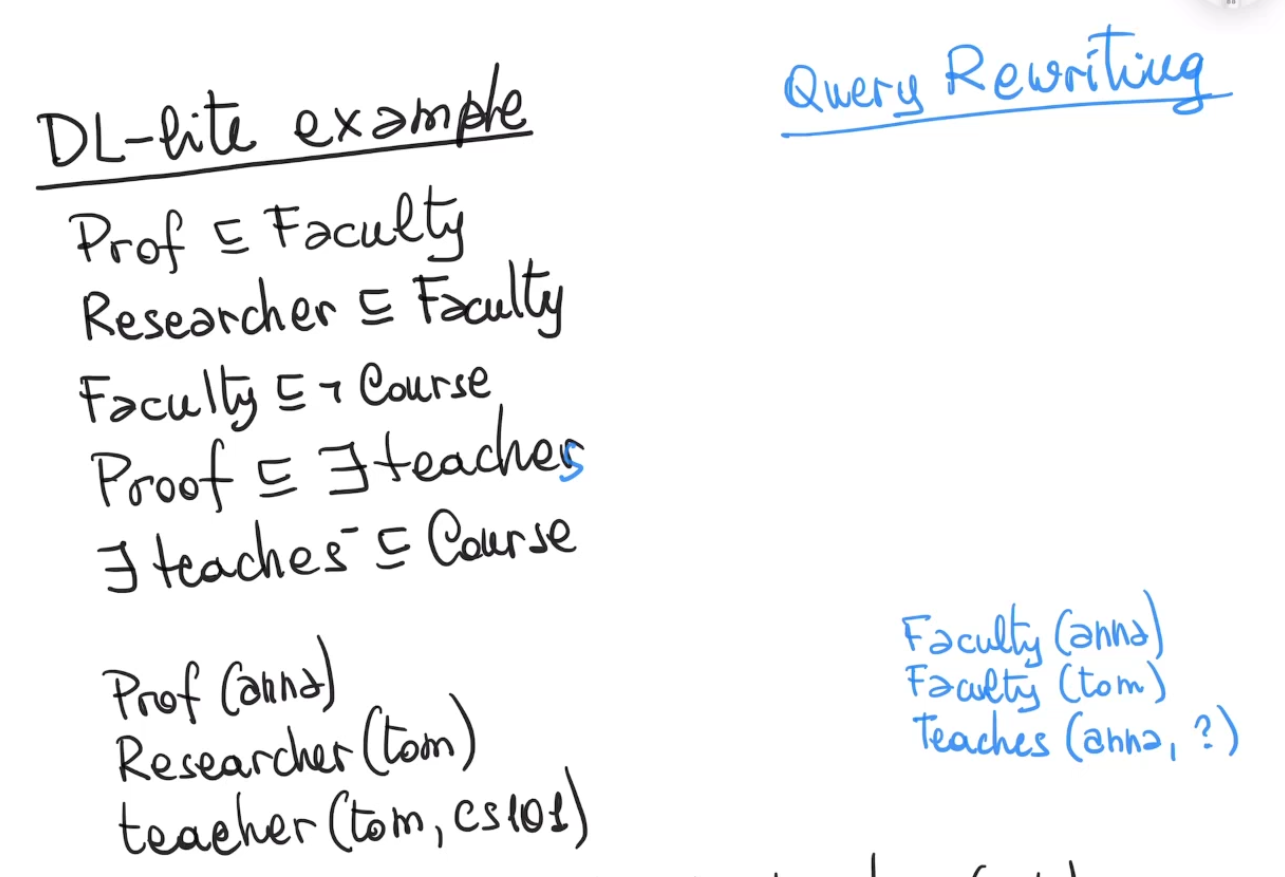 DL-lite example
Prof ⊑ Faculty
Researcher ⊑ Faculty
Faculty ⊑ ¬ Course
Proof ⊑ ∃ teaches
∃ teaches⁻ ⊑ Course
Prof (anna)
Researcher (tom)
teacher (tom, cs101)
Query Rewriting
Faculty (anna)
Faculty (tom)
Teaches (anna, ?)